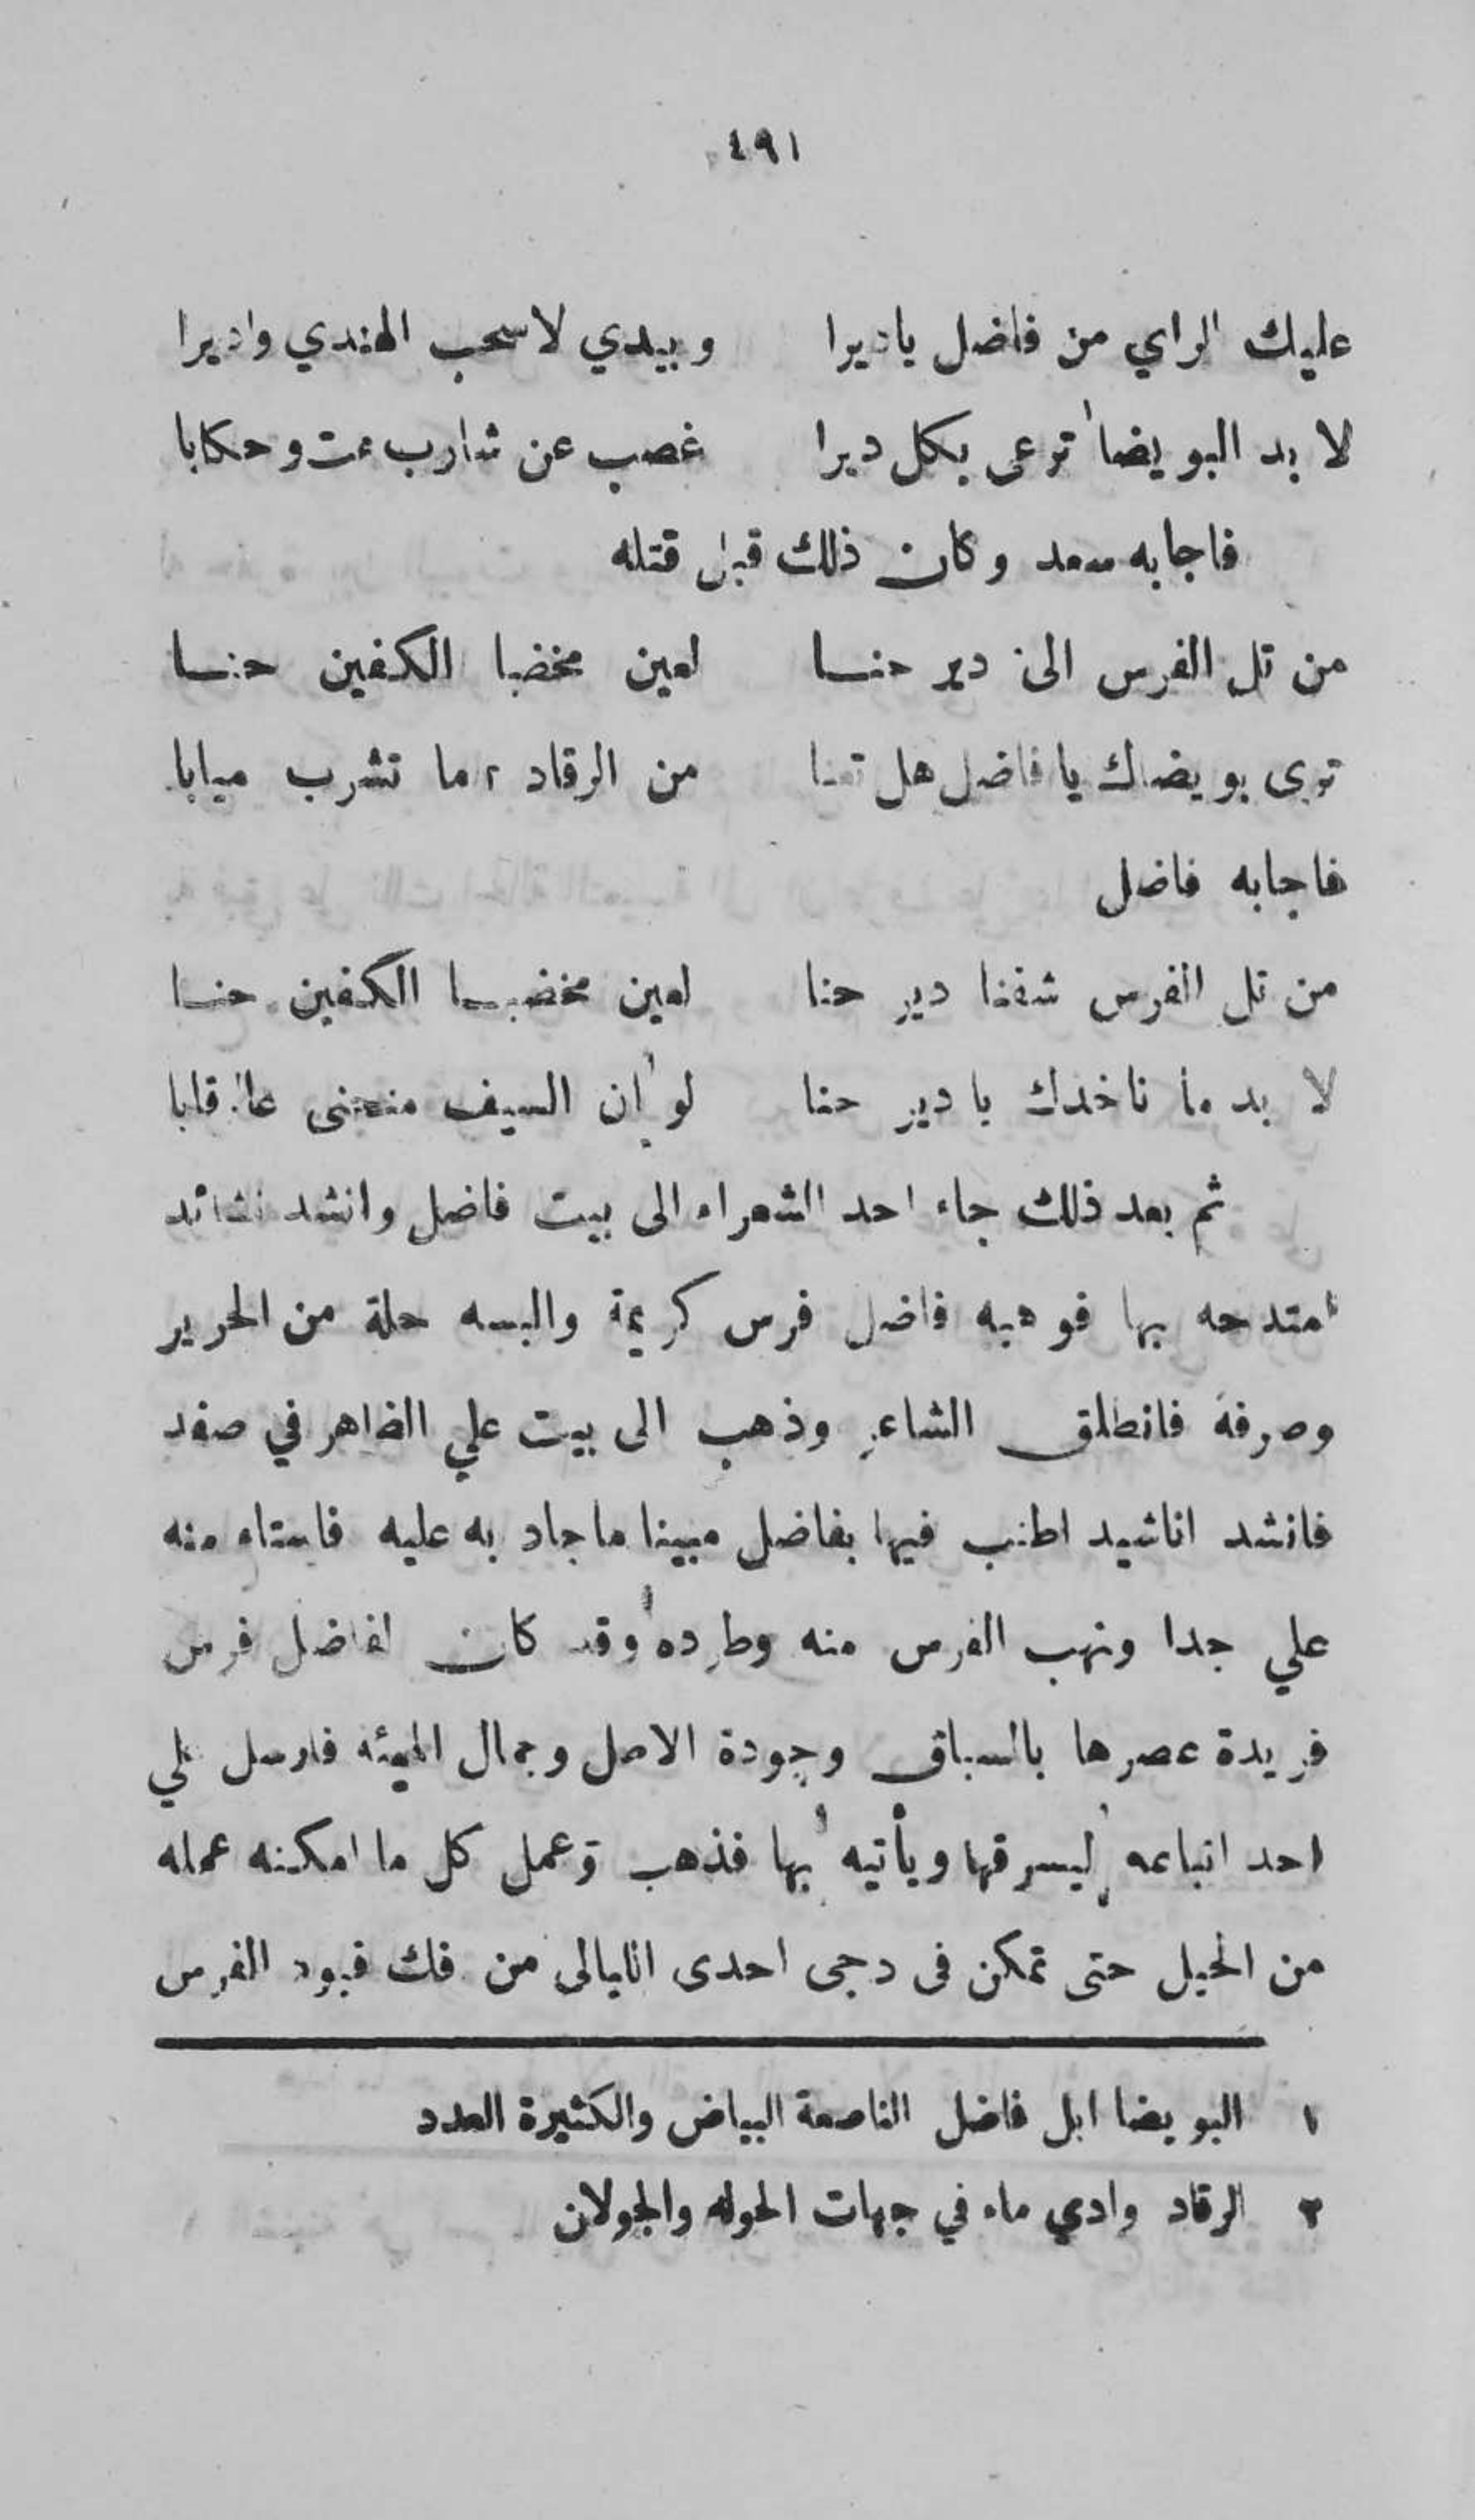 ٤٩١
عليك الراي من فاضل ياديرا وبيدي لاسحب الهندي واديرا
لا بد البويضا١ ترعى بكل ديرا غصب عن شارب وحكابا
فاجابه سعد وكان ذلك قبل قتله
من تل الفرس الى دير حنا لعين مخضبا الكفين حنا
ترى بويضاك يا فاضل هل تعنا من الرقاد ٢ ما تشرب ميابا
فاجابه فاضل
من تل الفرس شفنا دير حنا لعين مخضبا الكفين حنا
لا بد ما ناخدك يا دير حنا لو ان السيف منحنى قابا
ثم بعد ذلك جاء احد الشعراء الى بيت فاضل وانشد نشائد
امتدحه بها فوهبه فاضل فرس كريمة والبسه حلة من الحرير
وصرفه فانطلق الشاعر وذهب الى بيت علي الظاهر في صفد
فانشد اناشيد اطنب فيها بفاضل مبينا ما جاد به عليه فاستاء منه
علي جدا ونهب الفرس منه وطرده وقد كان لفاضل فرس
فريدة عصرها بالسباق وجودة الاصل وجمال الهيئه فارسل علي
احد اتباعه ليسرقها ويأتيه بها فذهب وعمل كل ما امكنه عمله
من الحيل حتى تمكن فى دجى احدى الليالى من فك قيود الفرس
١ البويضا ابل فاضل الناصعة البياض والكثيرة العدد
٢ الرقاد وادي ماء في جهات الحوله والجولان